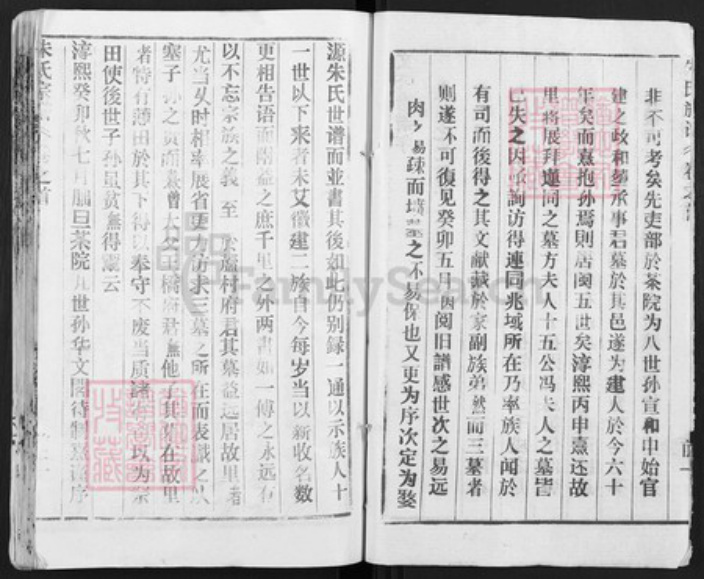 非不可考矣先吏部於茶院为八世孫宣和中始官
建之政和
承事君墓於其邑遂为建人於今六十
年矣而熹抱孫焉則居閩五世矣淳熙丙申熹还故
里将展拜連同之墓方夫人十五公冯夫人之墓皆
已失之因
詢访得連同兆域所在乃率族人闻於
有司而後得之其文献蔵於家副族弟然而三墓者
則遂不可復见癸卯五月因阅旧譜感世次之易远
肉
易疎而墳墓之不易保也又更为序次定为婺
源朱氏世谱而並書其後如此仍别録一通以示族人十
一世以下来者未艾徽建二族自今每岁当以新收名数
更相告语而附益之庶千里之外两書如一傅之永远有
以不忘宗族之義至
於蘆村府君其墓益远居故里者
尤当以时相率展省更力訪求三墓之所在而表識之以
塞子孙之责而熹曾大父王橋府君無他子其墓在故里
者特有薄田於其下得以奉守不废当质諸
以为祭
田使後世子孙虽贫無得鬻云
淳熙癸卯秋七月
日茶院九世孙华文閣待制熹謹序
FamilySearch